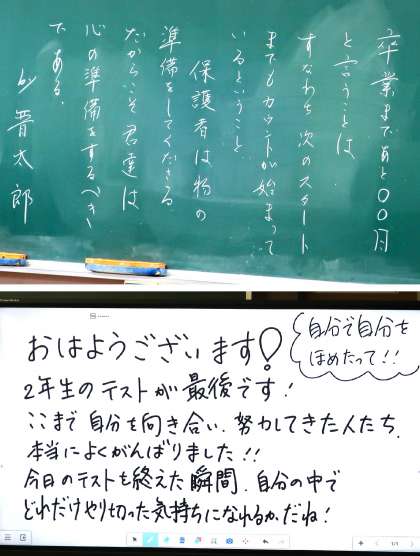 卒業まであと〇〇日
と言うことは、
すなわち次のスタート
までもカウントが始まって
いるということ。
保護者は物の
準備をしてくださる。
だからこそ君達は
心の準備をするべき
である。
by 晋太郎
おはようございます！
自分で自分を
ほめたって！！
2年生のテストが最後です！
ここまで自分を向き合い、努力してきた人たち、
本当によくがんばりました！！
今日のテストを終えた瞬間、自分の中で
どれだけやり切った気持ちになれるか、だね！